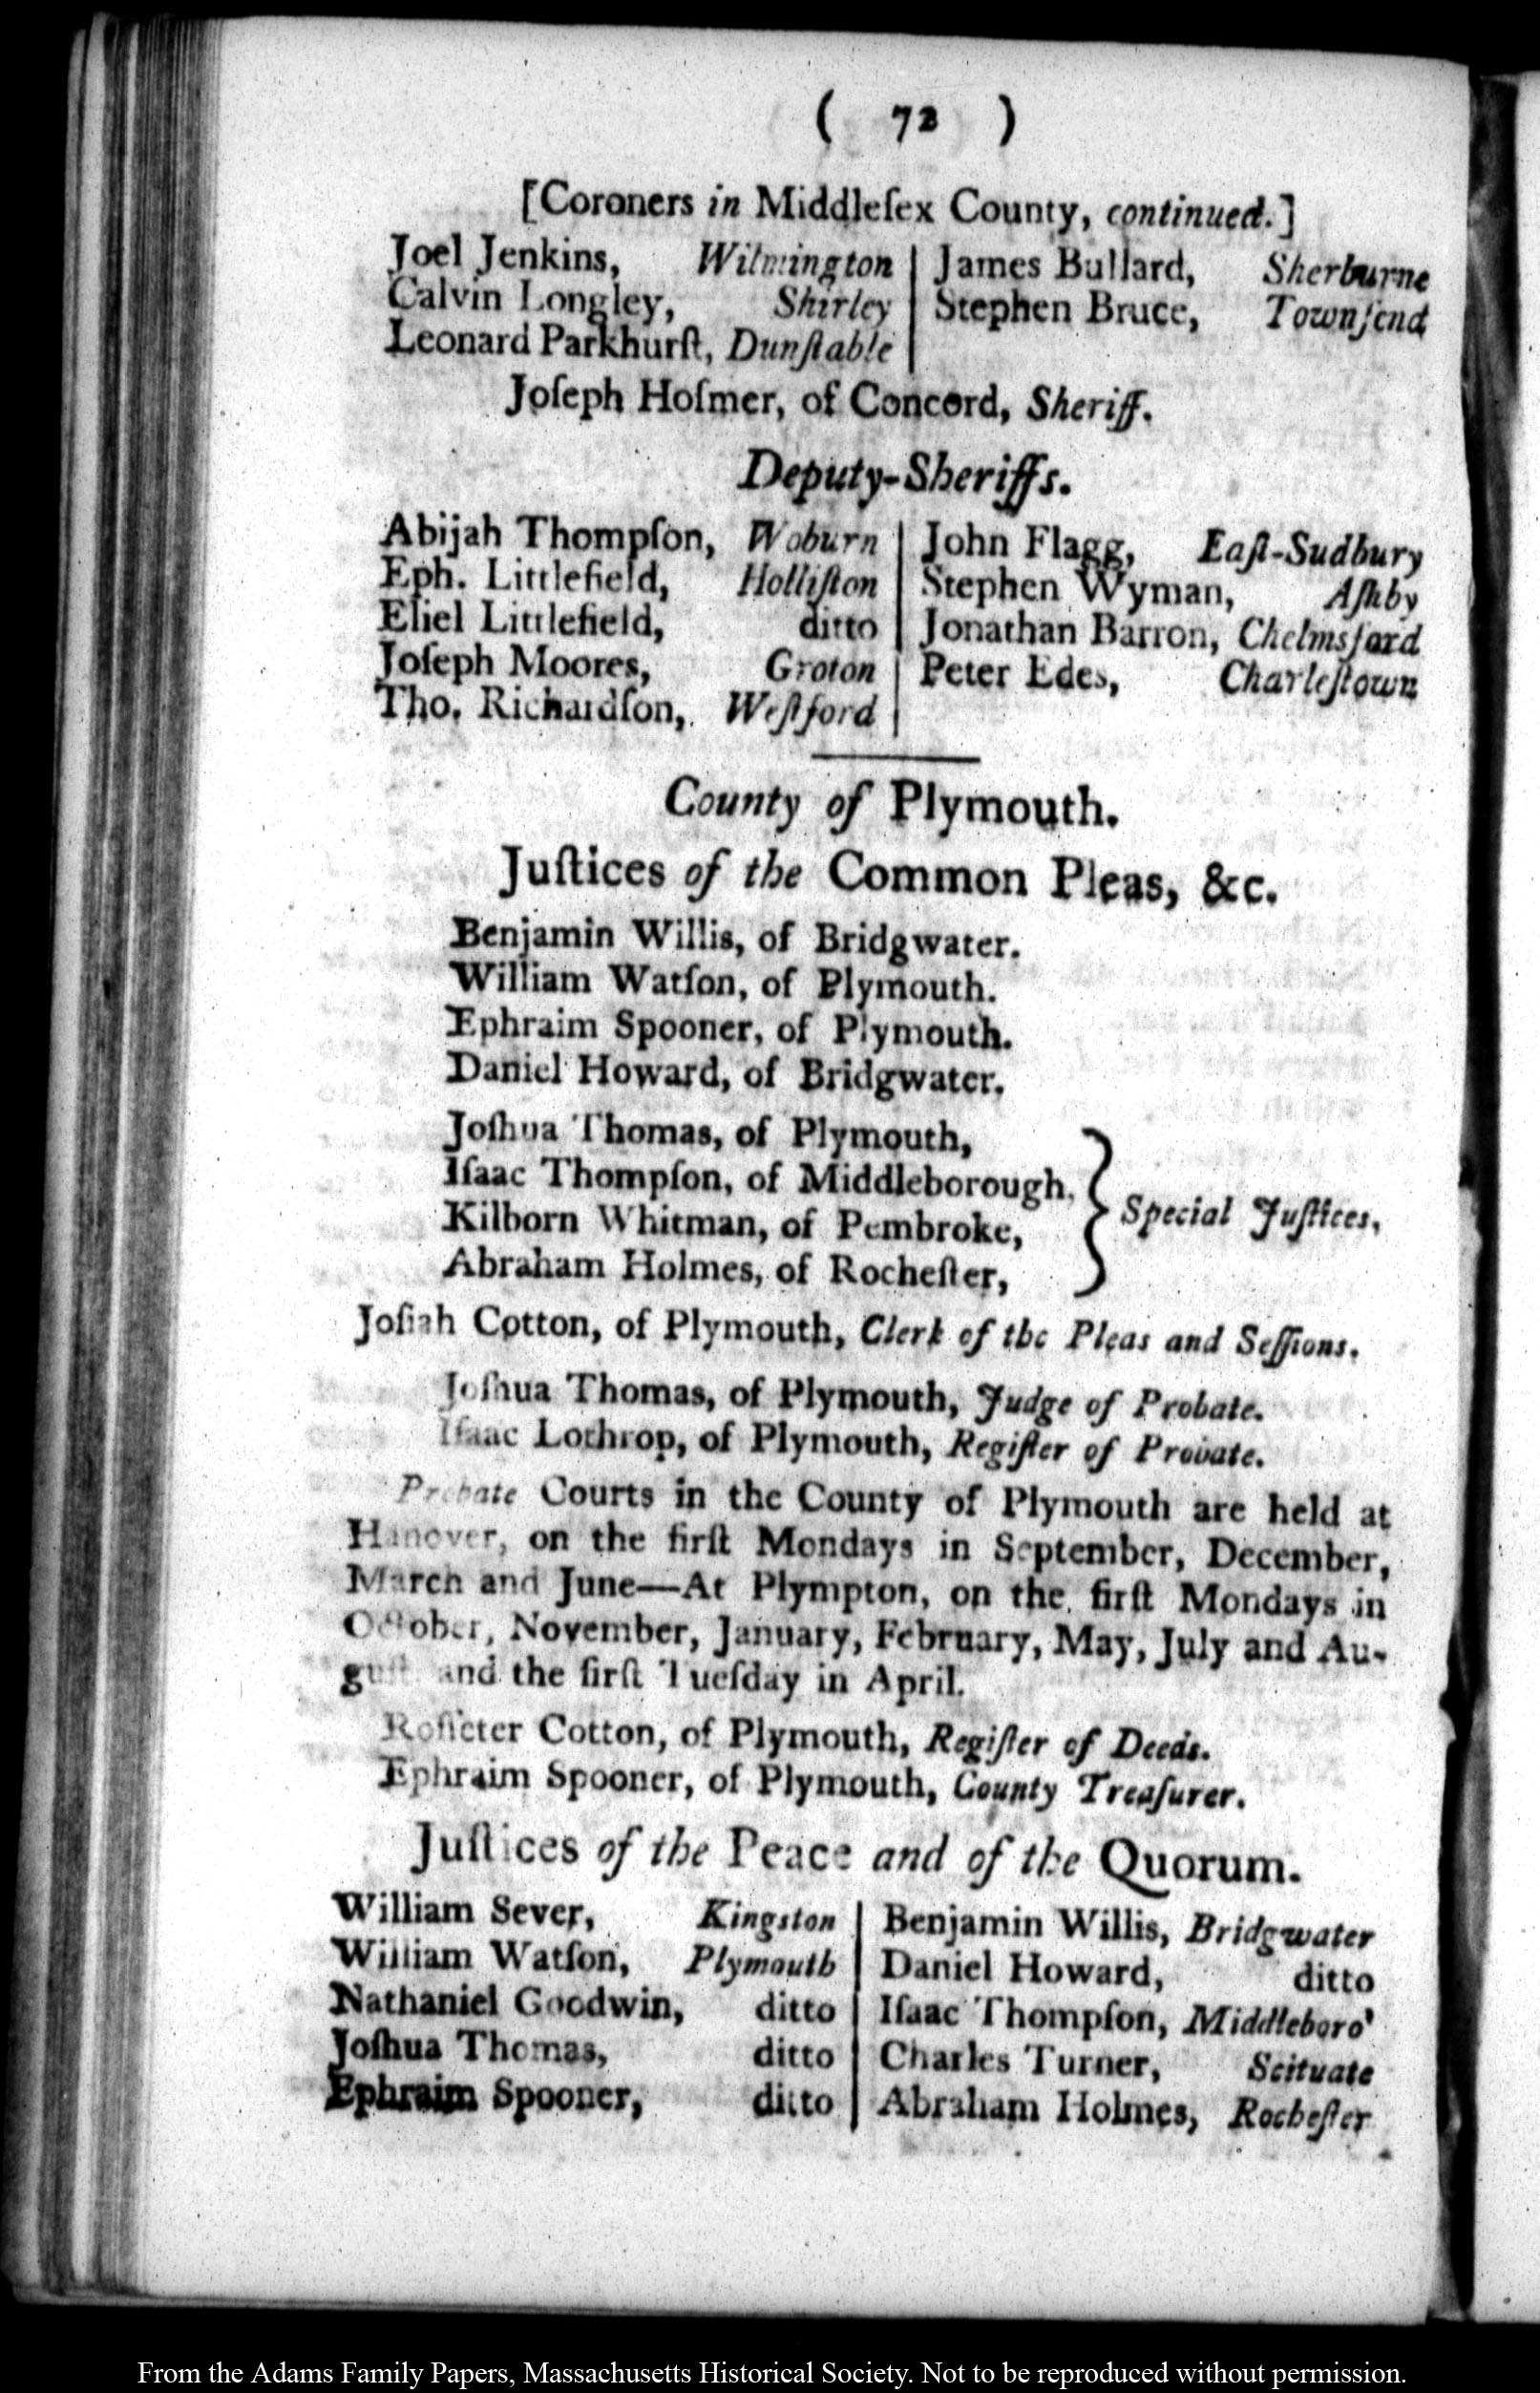 ( 72 )
[Coroners in Middleſex County, continued.]
Joel Jenkins, Wilmington | James Bullard, Sherburne
Calvin Longley, Shirley | Stephen Bruce, Townſend
Leonard Parkhurſt, Dunſtable |
Joſeph Hoſmer, of Concord, Sheriff.
Deputy-Sheriffs.
Abijah Thompſon, Woburn | John Flagg, Eaſt-Sudbury
Eph. Littlefield, Holliſton | Stephen Wyman, Aſhby
Eliel Littlefield, ditto | Jonathan Barron, Chelmsford
Joſeph Moores, Groton | Peter Edes, Charleſtown
Tho. Richardſon, Weſtford |
County of Plymouth.
Juſtices of the Common Pleas, &c.
Benjamin Willis, of Bridgwater.
William Watſon, of Plymouth.
Ephraim Spooner, of Plymouth.
Daniel Howard, of Bridgwater.
Joſhua Thomas, of Plymouth,
Iſaac Thompſon, of Middleborough,
Kilborn Whitman, of Pembroke,
Abraham Holmes, of Rocheſter,
} Special Juſtices,
Joſiah Cotton, of Plymouth, Clerk of the Pleas and Seſſions.
Joſhua Thomas, of Plymouth, Judge of Probate.
Iſaac Lothrop, of Plymouth, Regiſter of Probate.
Probate Courts in the County of Plymouth are held at
Hanover, on the firſt Mondays in September, December,
March and June—At Plympton, on the firſt Mondays in
October, November, January, February, May, July and Au-
guſt and the firſt Tueſday in April.
Roſſeter Cotton, of Plymouth, Regiſter of Deeds.
Ephraim Spooner, of Plymouth, County Treaſurer.
Juſtices of the Peace and of the Quorum.
William Sever, Kingston | Benjamin Willis, Bridgwater
William Watſon, Plymouth | Daniel Howard, ditto
Nathaniel Goodwin, ditto | Iſaac Thompſon, Middleboro'
Joſhua Thomas, ditto | Charles Turner, Scituate
Ephraim Spooner, ditto | Abraham Holmes, Rocheſter
From the Adams Family Papers, Massachusetts Historical Society. Not to be reproduced without permission.